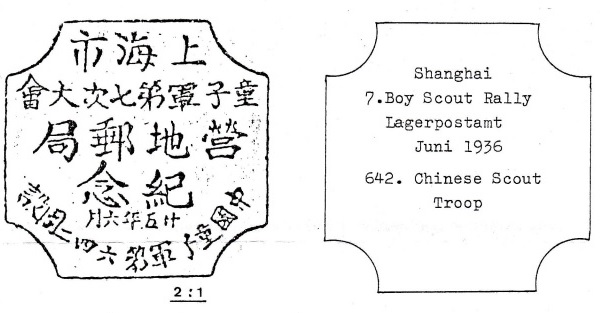 上海市
童子軍第七次大會
營地郵局
紀念
廿五年六月
中國童子軍第六四二團設
2:1
Shanghai
7.Boy Scout Rally
Lagerpostamt
Juni 1936
642. Chinese Scout
Troop